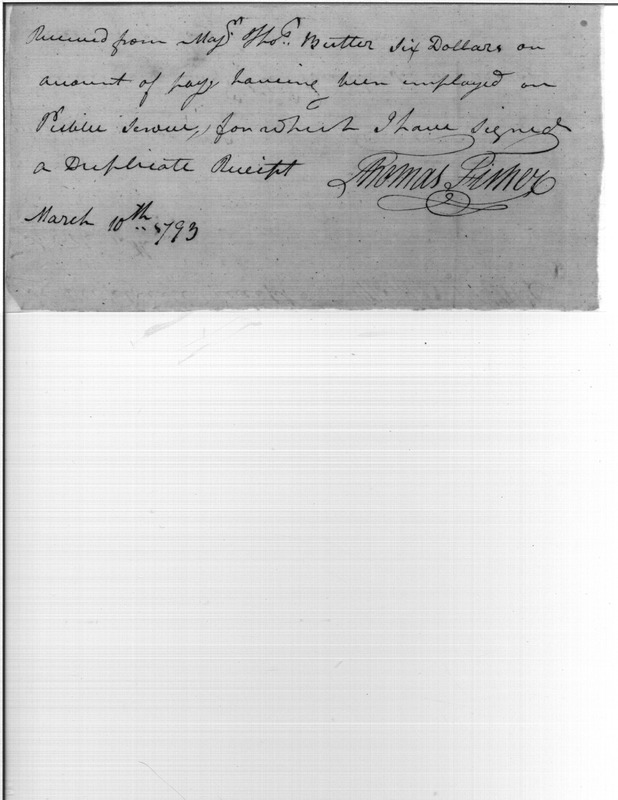 Received from Majr. Thos. Butler Six Dollars on
account of pay having been employed on
Public Service, for which I have signed
a Duplicate Receipt Thomas Fisher
March 10th 1793